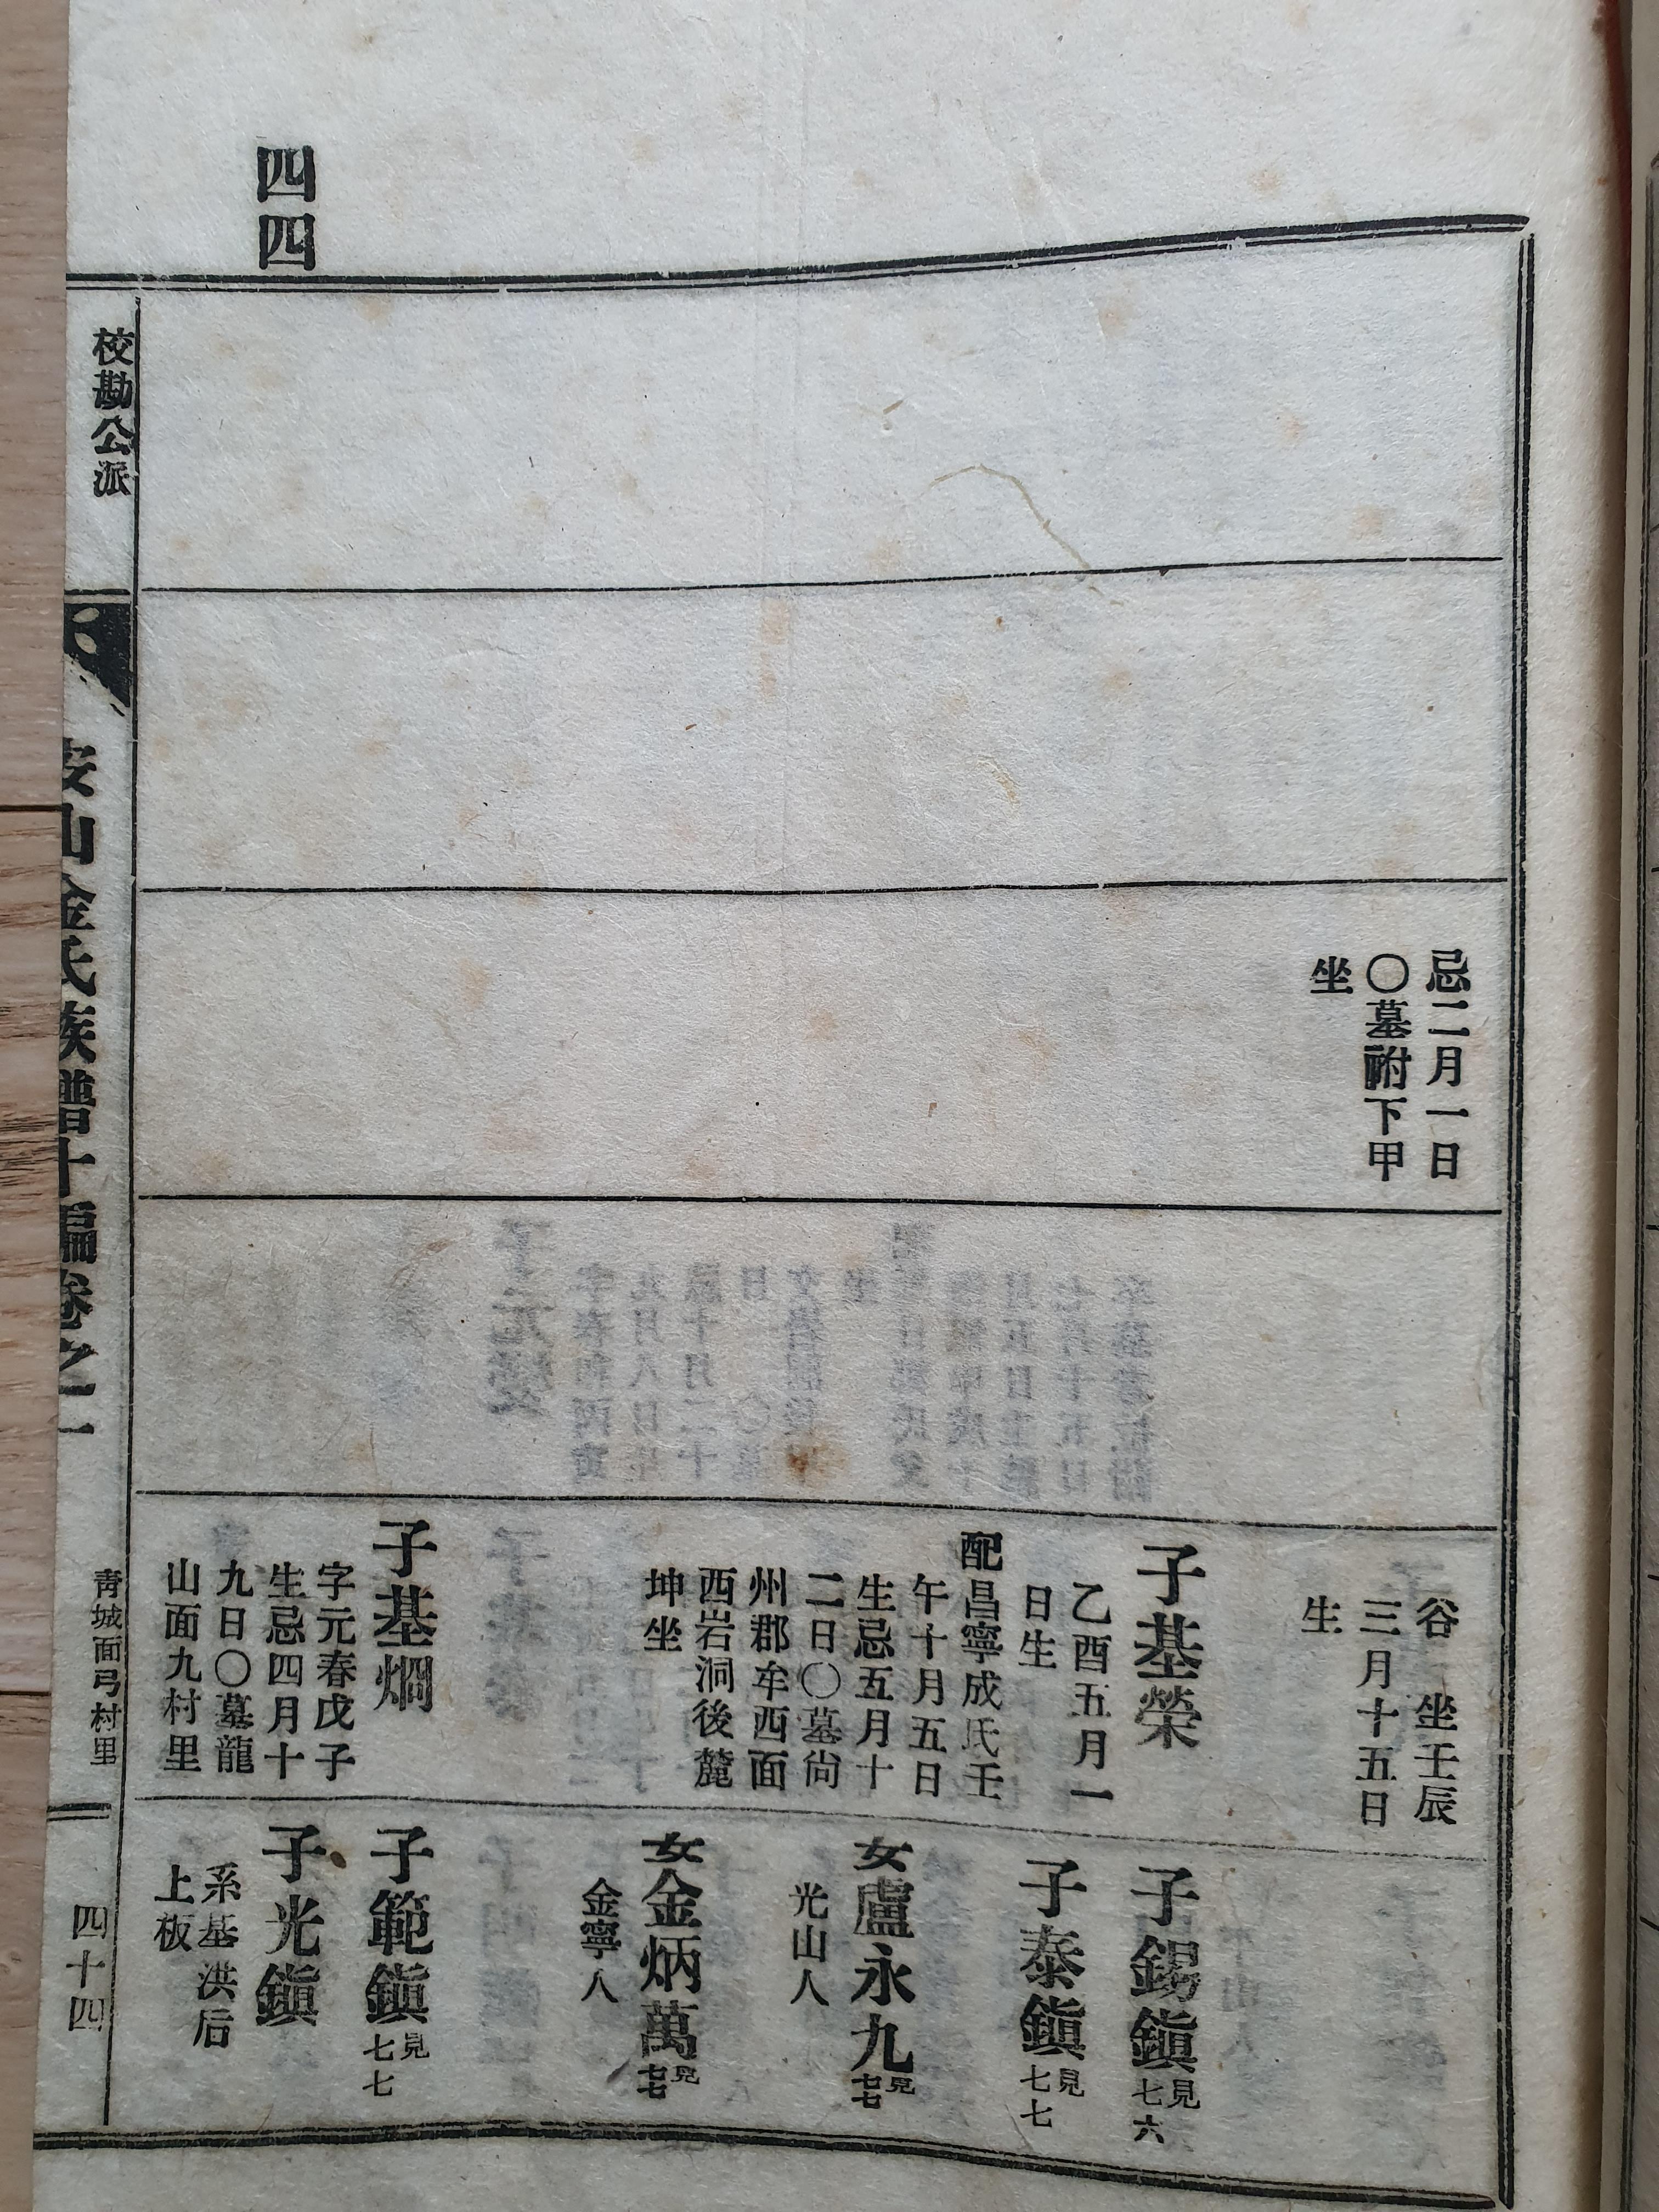 四四
忌二月一日
〇墓祔下甲
坐
谷 坐壬辰
三月十五日
生
子基榮
乙酉五月一
日生
配昌寧成氏壬
午十月五日
生忌五月十
二日〇墓尙
州郡牟西面
西岩洞後麓
坤坐
子基烱
字元春戊子
生忌四月十
九日〇墓龍
山面九村里
子錫鎭 見七六
子泰鎭 見七七
女盧永九 見七七
光山人
女金炳萬 見七七
金寧人
子範鎭 見七七
子光鎭
系基洪后
上板
校勘公派
安山金氏族譜十編卷之一
靑城面弓村里
四十四